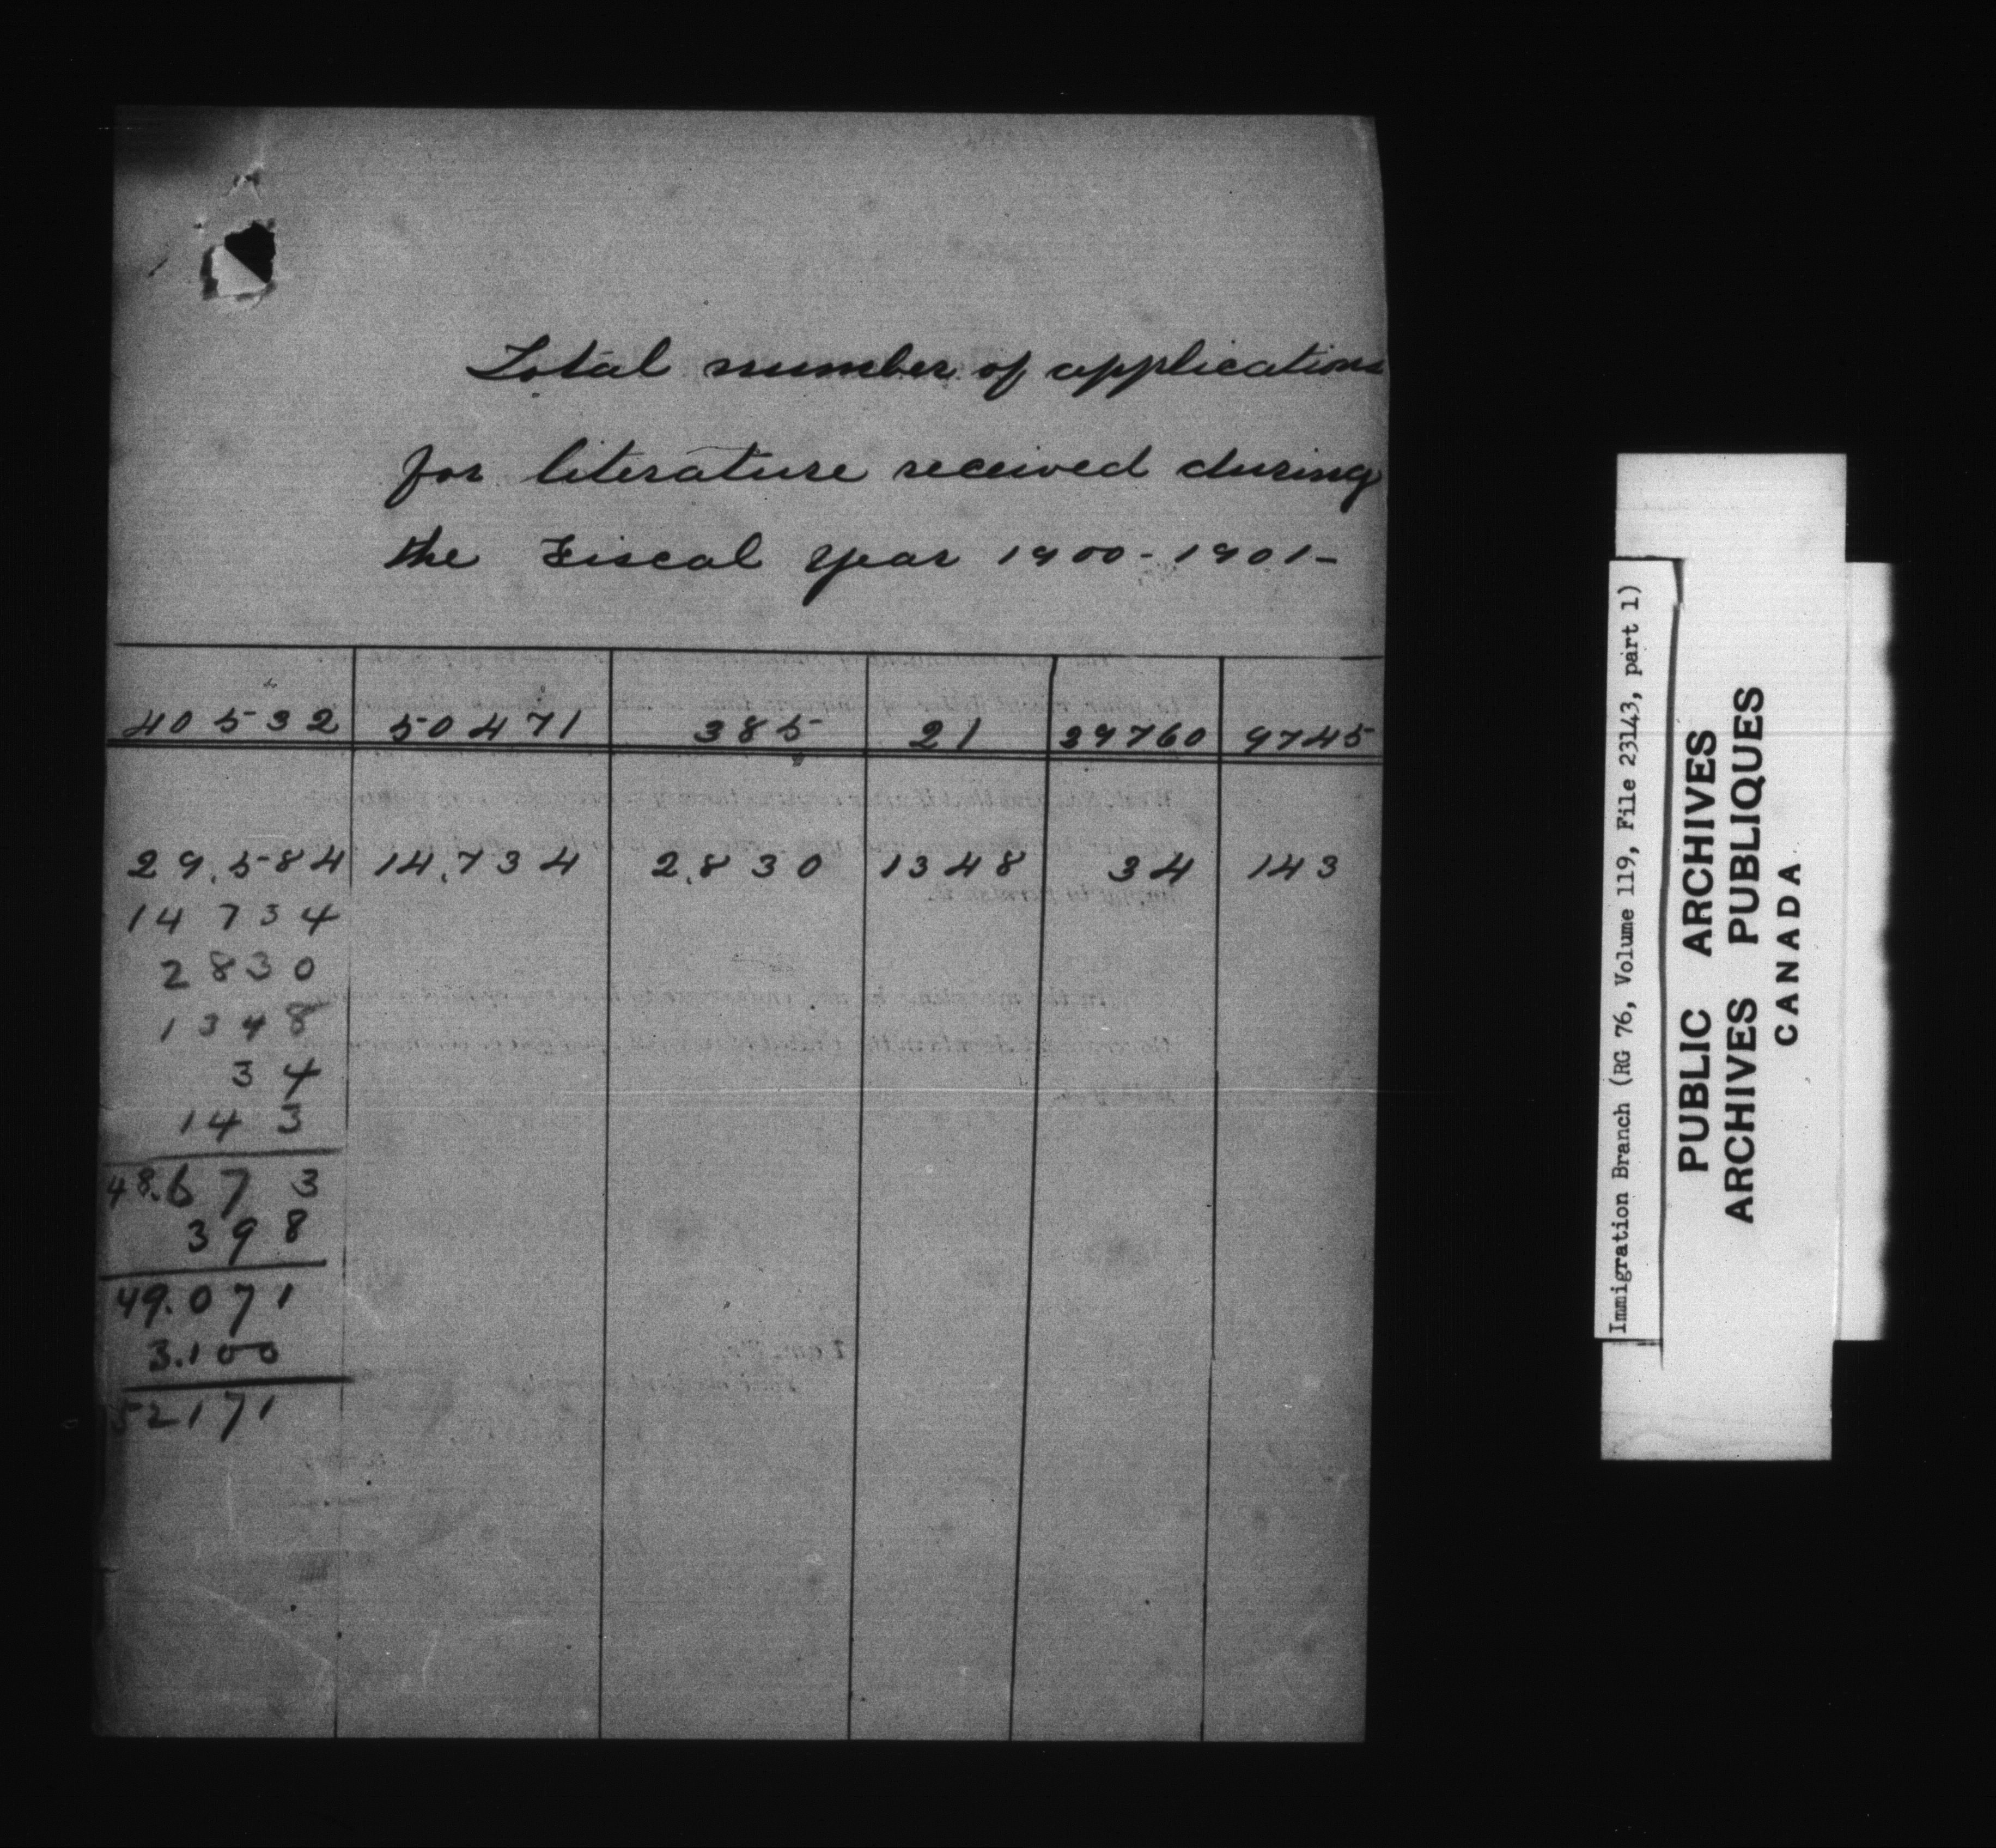 Total number of applications
for literature received during
the Fiscal year 1900-1901-
40532 50471 385 21 29760 9745
29.584 14.734 2.830 1348 34 143
14 734
2830
1348
34
143
48.673
398
49.071
3.100
52171
Immigration Branch (RG 76, Volume 119, File 23143, part 1)
PUBLIC ARCHIVES
ARCHIVES PUBLIQUES
CANADA